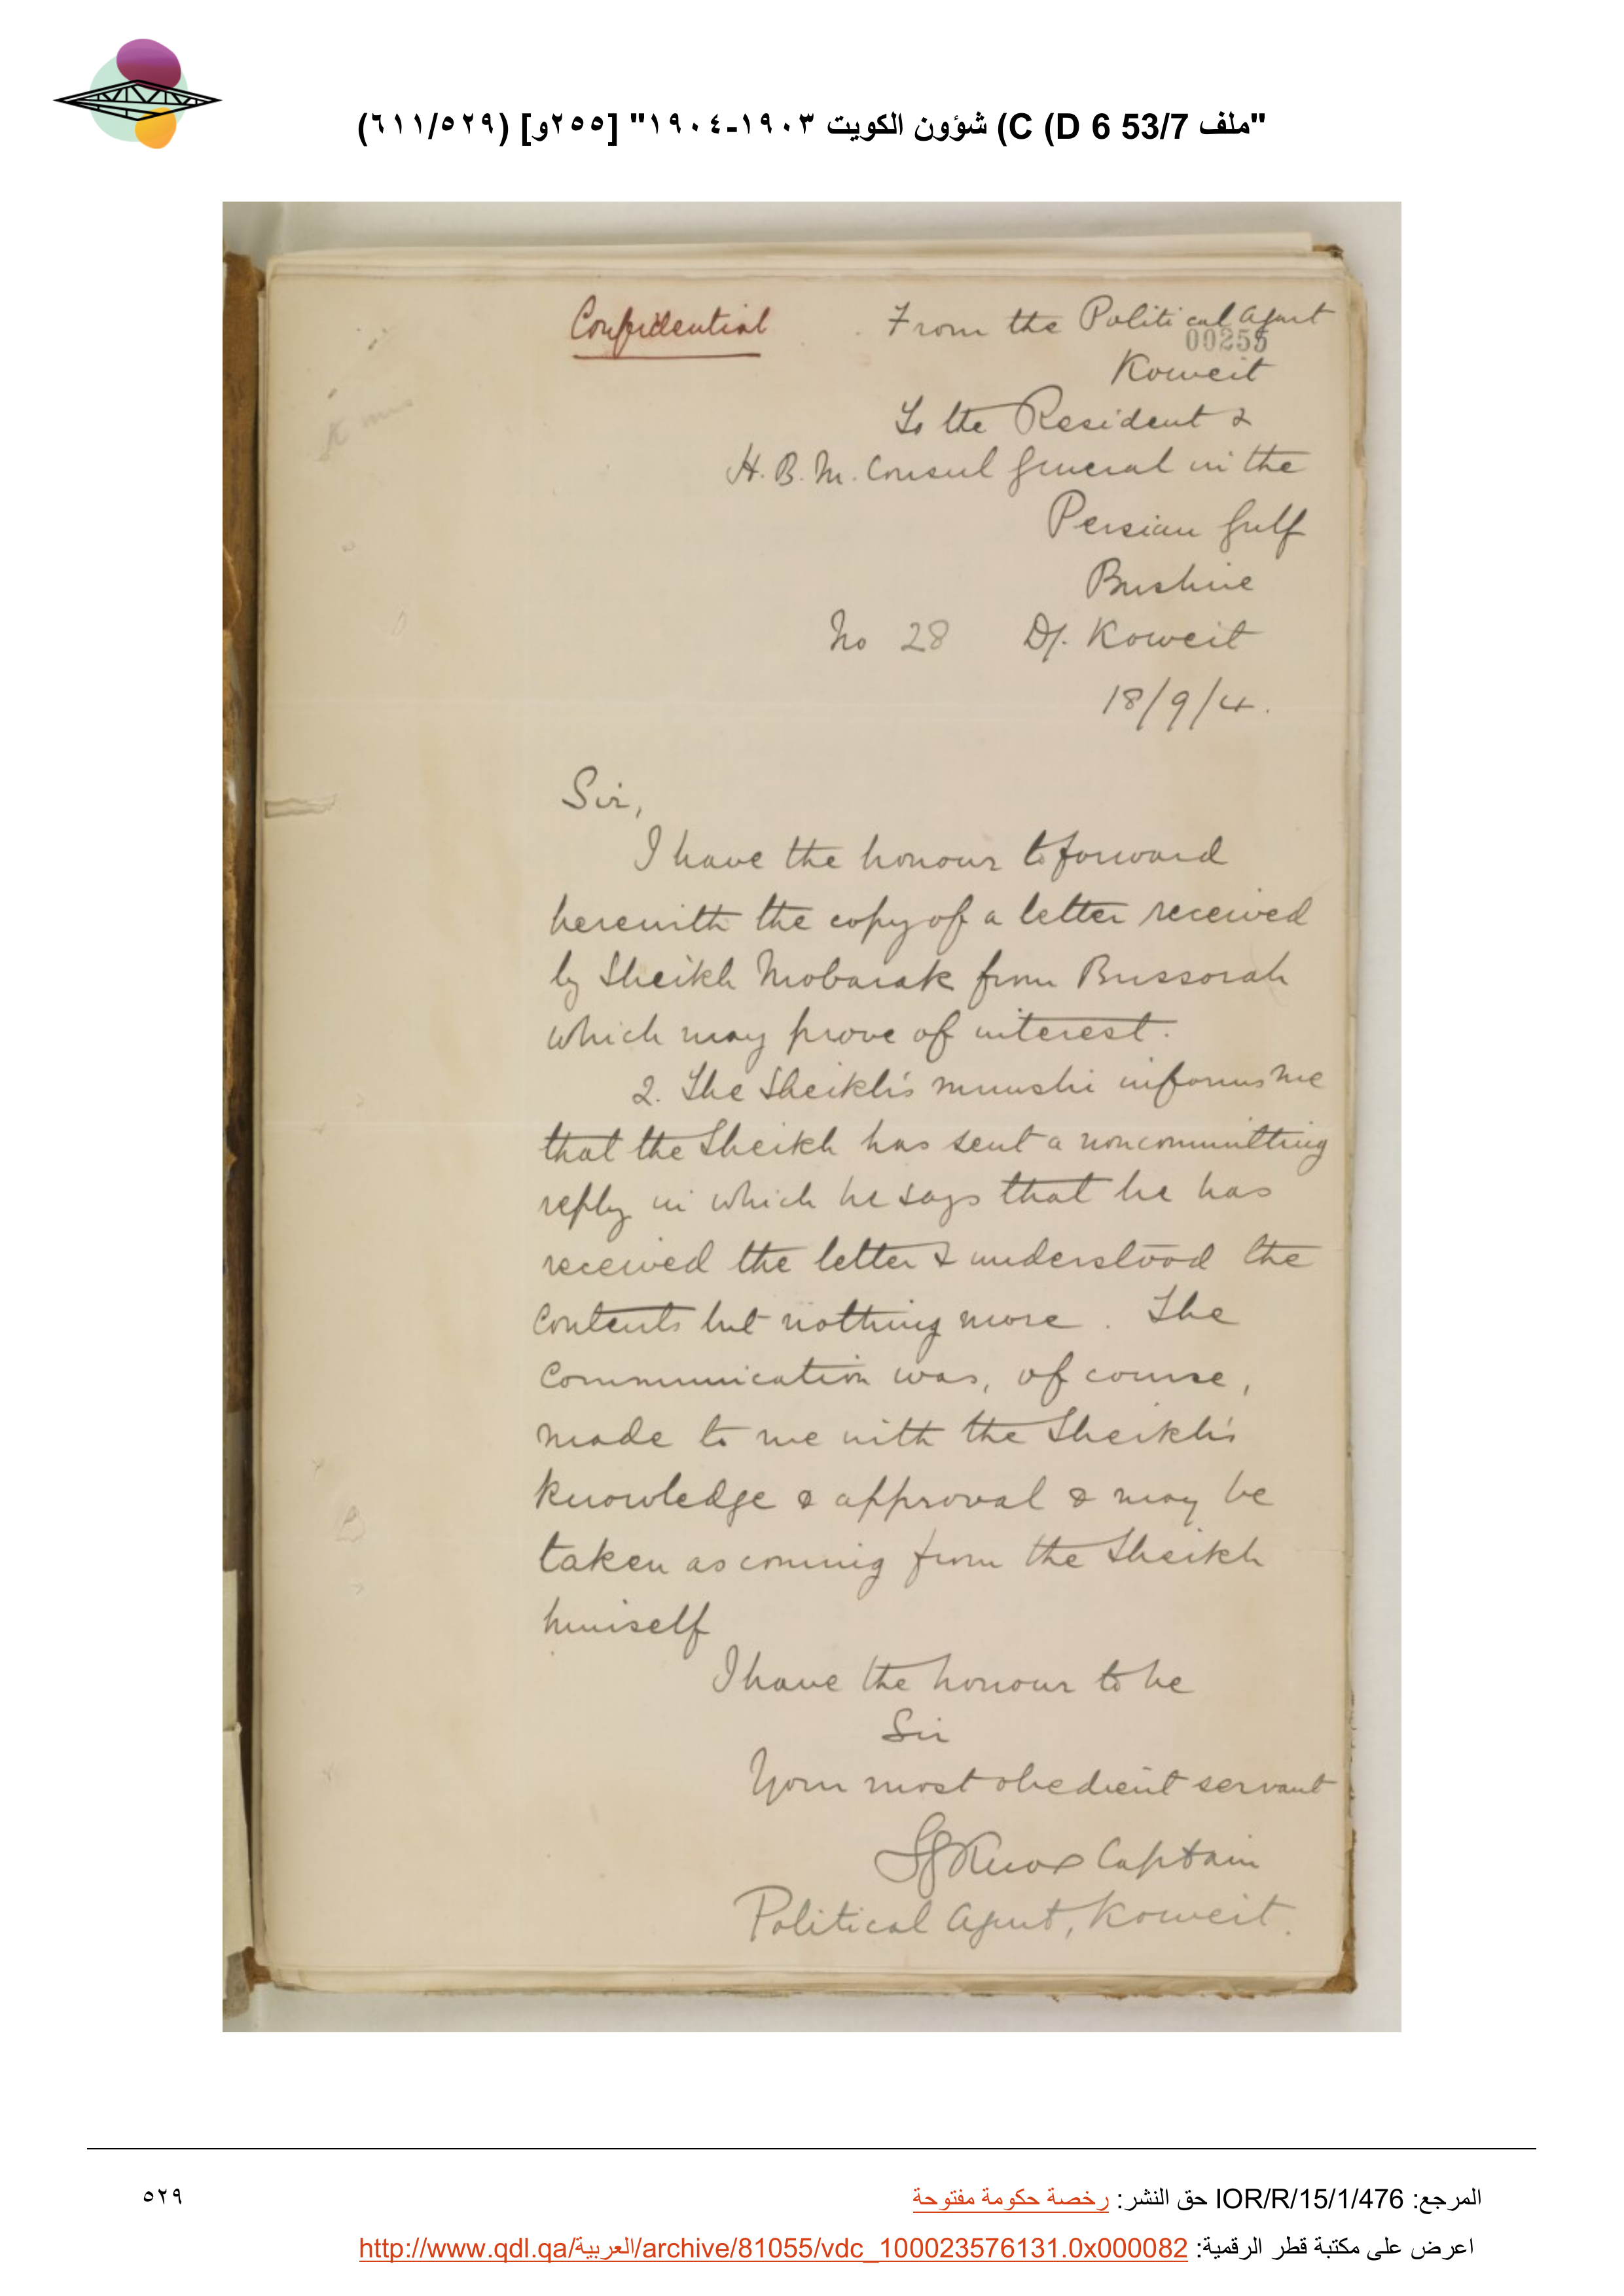 "ملف 53/7 C (D 6) شؤون الكويت ١٩٠٣-١٩٠٤" [٢٥٥و] (٦١١/٥٢٩)
Confidential
From the Political Agent
00255
Koweit
To the Resident &
H. B. M. Consul General in the
Persian Gulf
Bushire
No 28 D/. Koweit
18/9/4.
Sir,
I have the honour to forward
herewith the copy of a letter received
by Sheikh Mobarak from Bussorah
which may prove of interest.
2. The Sheikh's munshi informs me
that the Sheikh has sent a noncommitting
reply in which he says that he has
received the letter & understood the
contents but nothing more. The
communication was, of course,
made to me with the Sheikh's
knowledge & approval & may be
taken as coming from the Sheikh
himself
I have the honour to be
Sir
Your most obedient servant
SGKnox Captain
Political Agent, Koweit.
المرجع: IOR/R/15/1/476 حق النشر: رخصة حكومة مفتوحة
٥٢٩
اعرض على مكتبة قطر الرقمية: http://www.qdl.qa/العربية/archive/81055/vdc_100023576131.0x000082